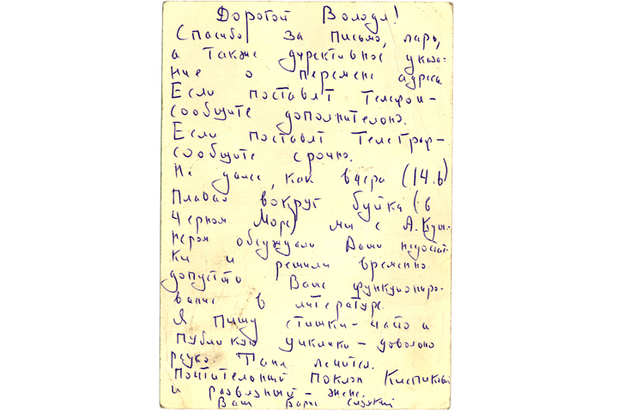 Дорогой Володя!
Спасибо за письмо, марь,
а также директивное указа-
ние о перемене адреса
Если поставят телефон -
сообщите дополнительно.
Если поставят телеграф -
сообщите срочно.
Не далее, как вчера (14.6)
Плавая вокруг буйка (в
Черном Море) мы с А. Куш-
нером обсуждали Ваши недостат-
ки и решили временно
допустить Ваше функциониро-
вание в литературе.
Я пишу стишки - чаще а
публикую циклики - довольно
редко. Таня ленится.
Почтительный поклон
и развязный - жене.
Ваш Борис Слуцкий